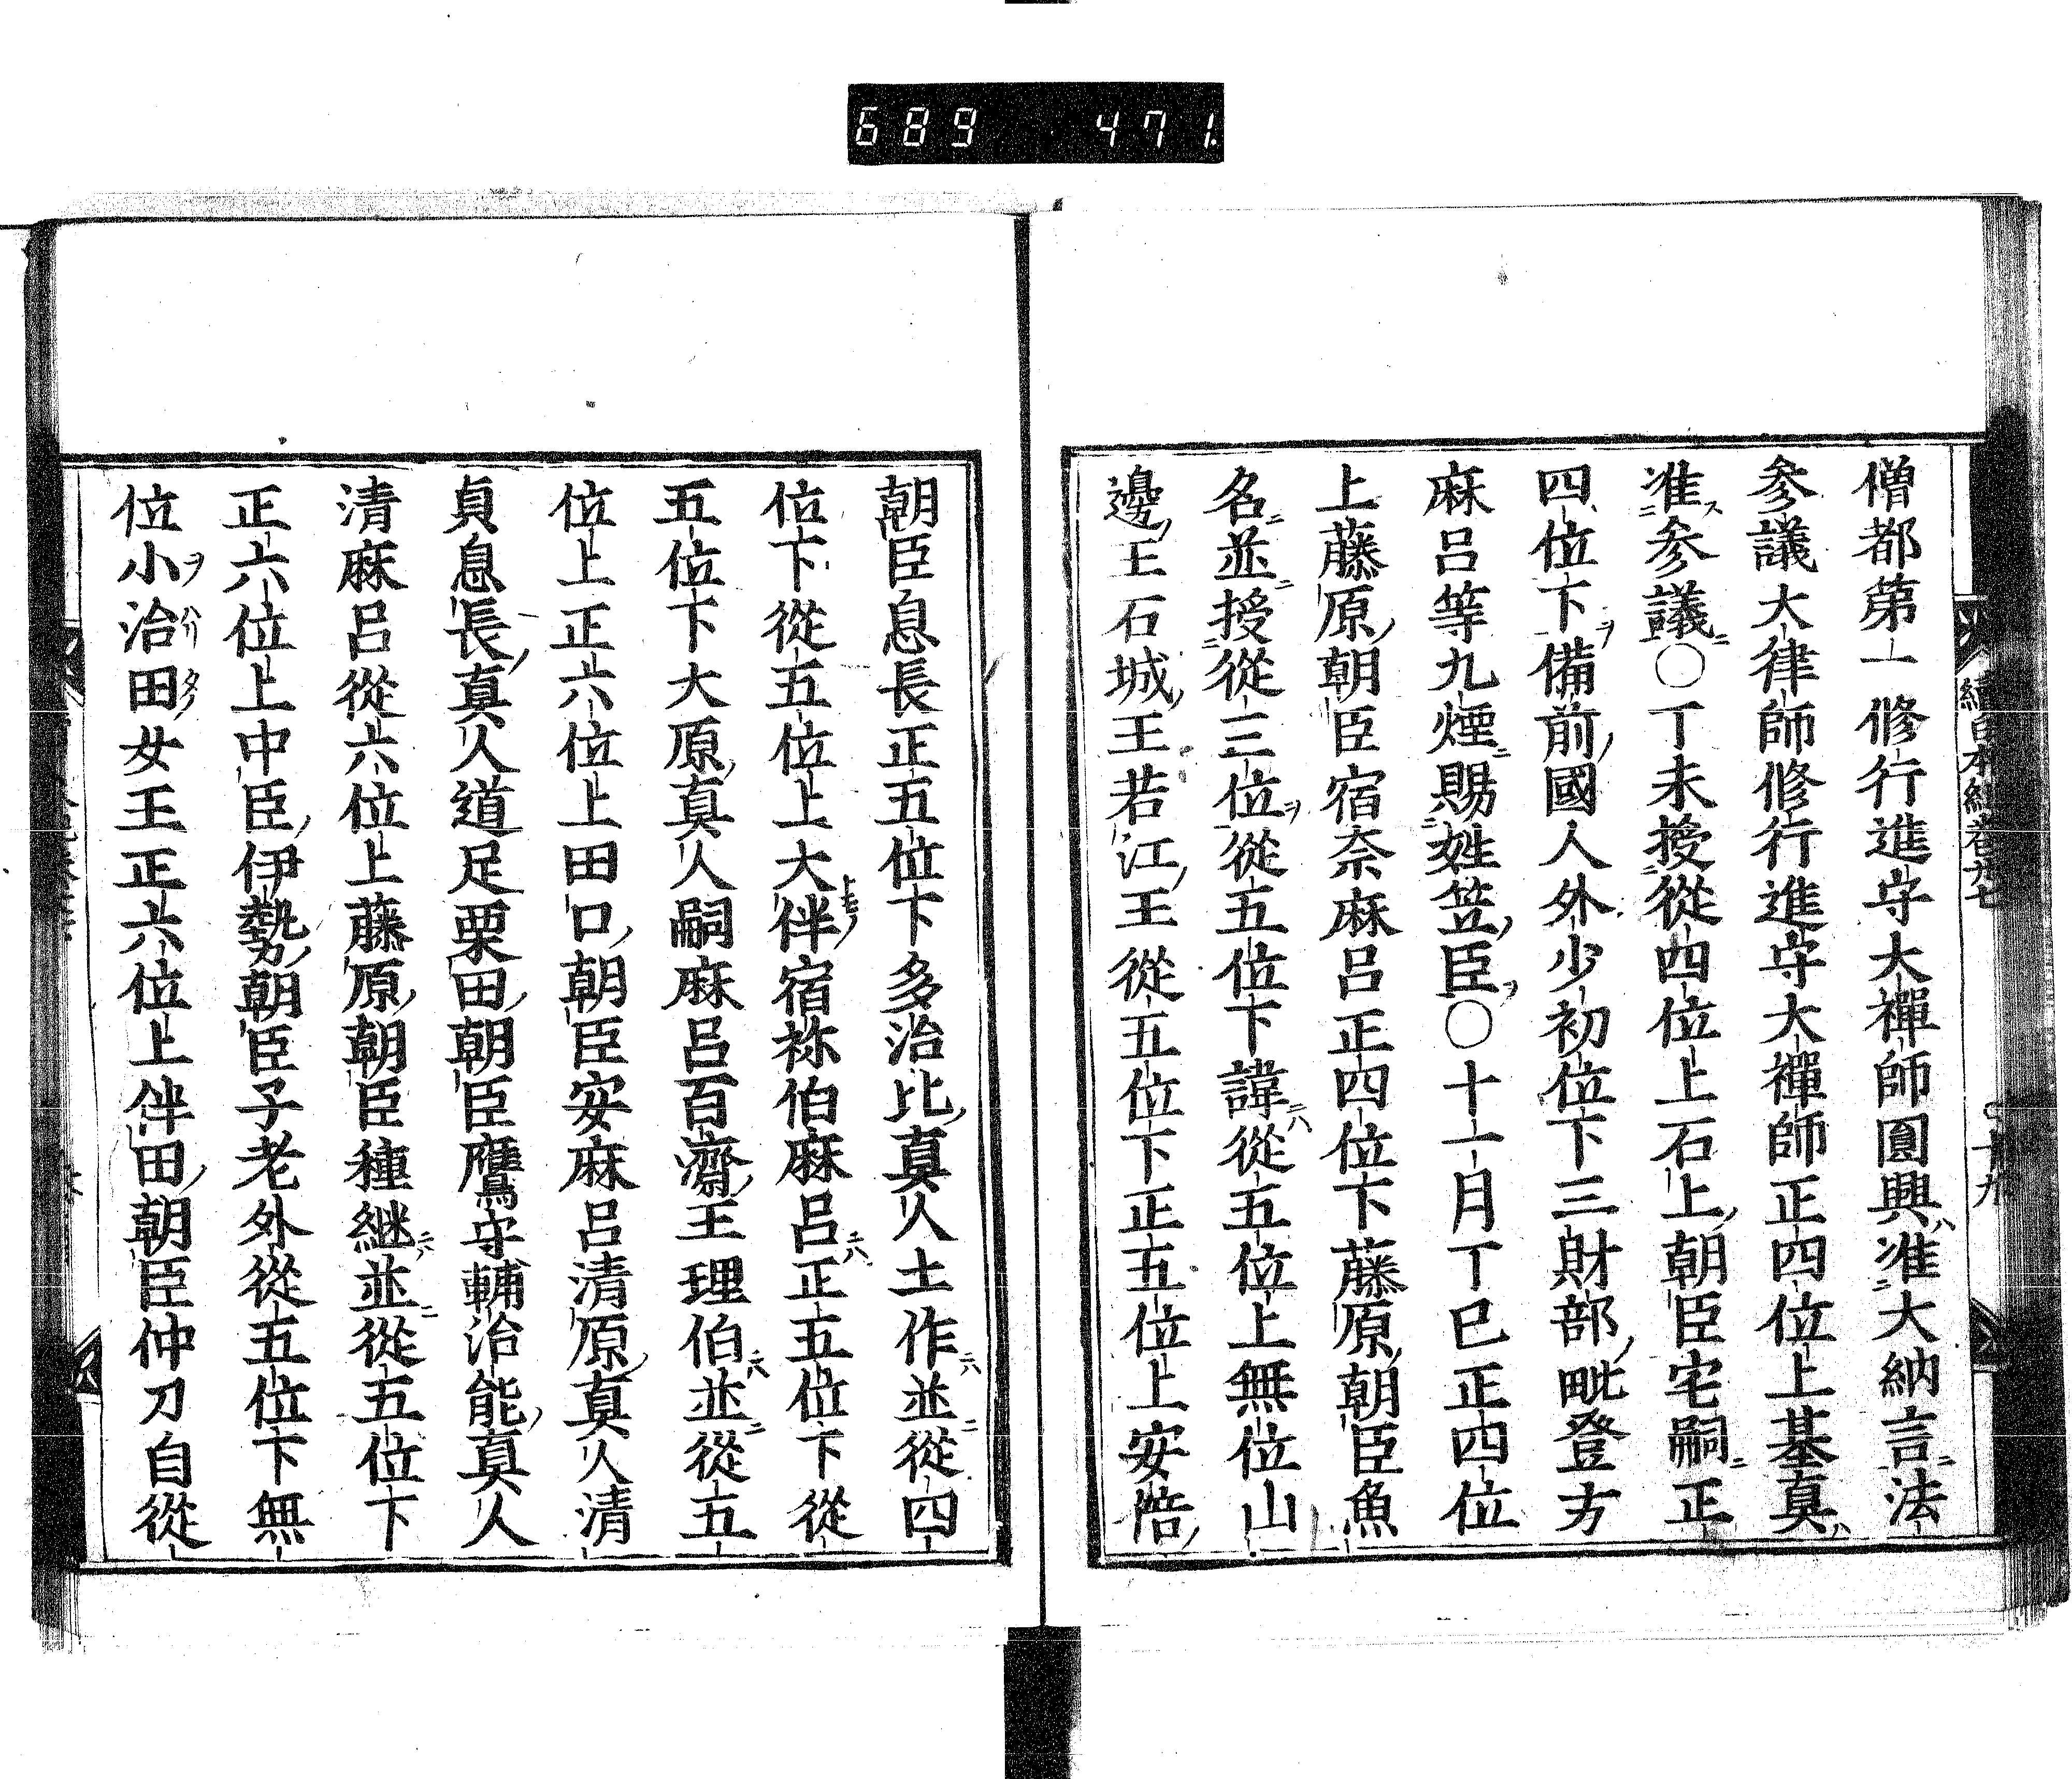 689 471
續日本紀卷廿七
二十九
僧都第一修行進守大禪師圓興准大納言法
參議大律師修行進守大禪師正四位上基真
准參議〇丁未授從四位上石上朝臣宅嗣正
四位下備前國人外少初位下三財部毗登方
麻呂等九煙賜姓笠臣〇十一月丁巳正四位
上藤原朝臣宿奈麻呂正四位下藤原朝臣魚
名並授從三位從五位下諱從五位上無位山
邊王石城王若江王從五位下正五位上安陪
朝臣息長正五位下多治比真人土作並從四
位下從五位上大伴宿祢伯麻呂正五位下從
五位下大原真人嗣麻呂百濟王理伯並從五
位上正六位上田口朝臣安麻呂清原真人清
貞息長真人道足粟田朝臣鷹守輔治能真人
清麻呂從六位上藤原朝臣種継並從五位下
正六位上中臣伊勢朝臣子老外從五位下無
位小治田女王正六位上伴田朝臣仲刀自從